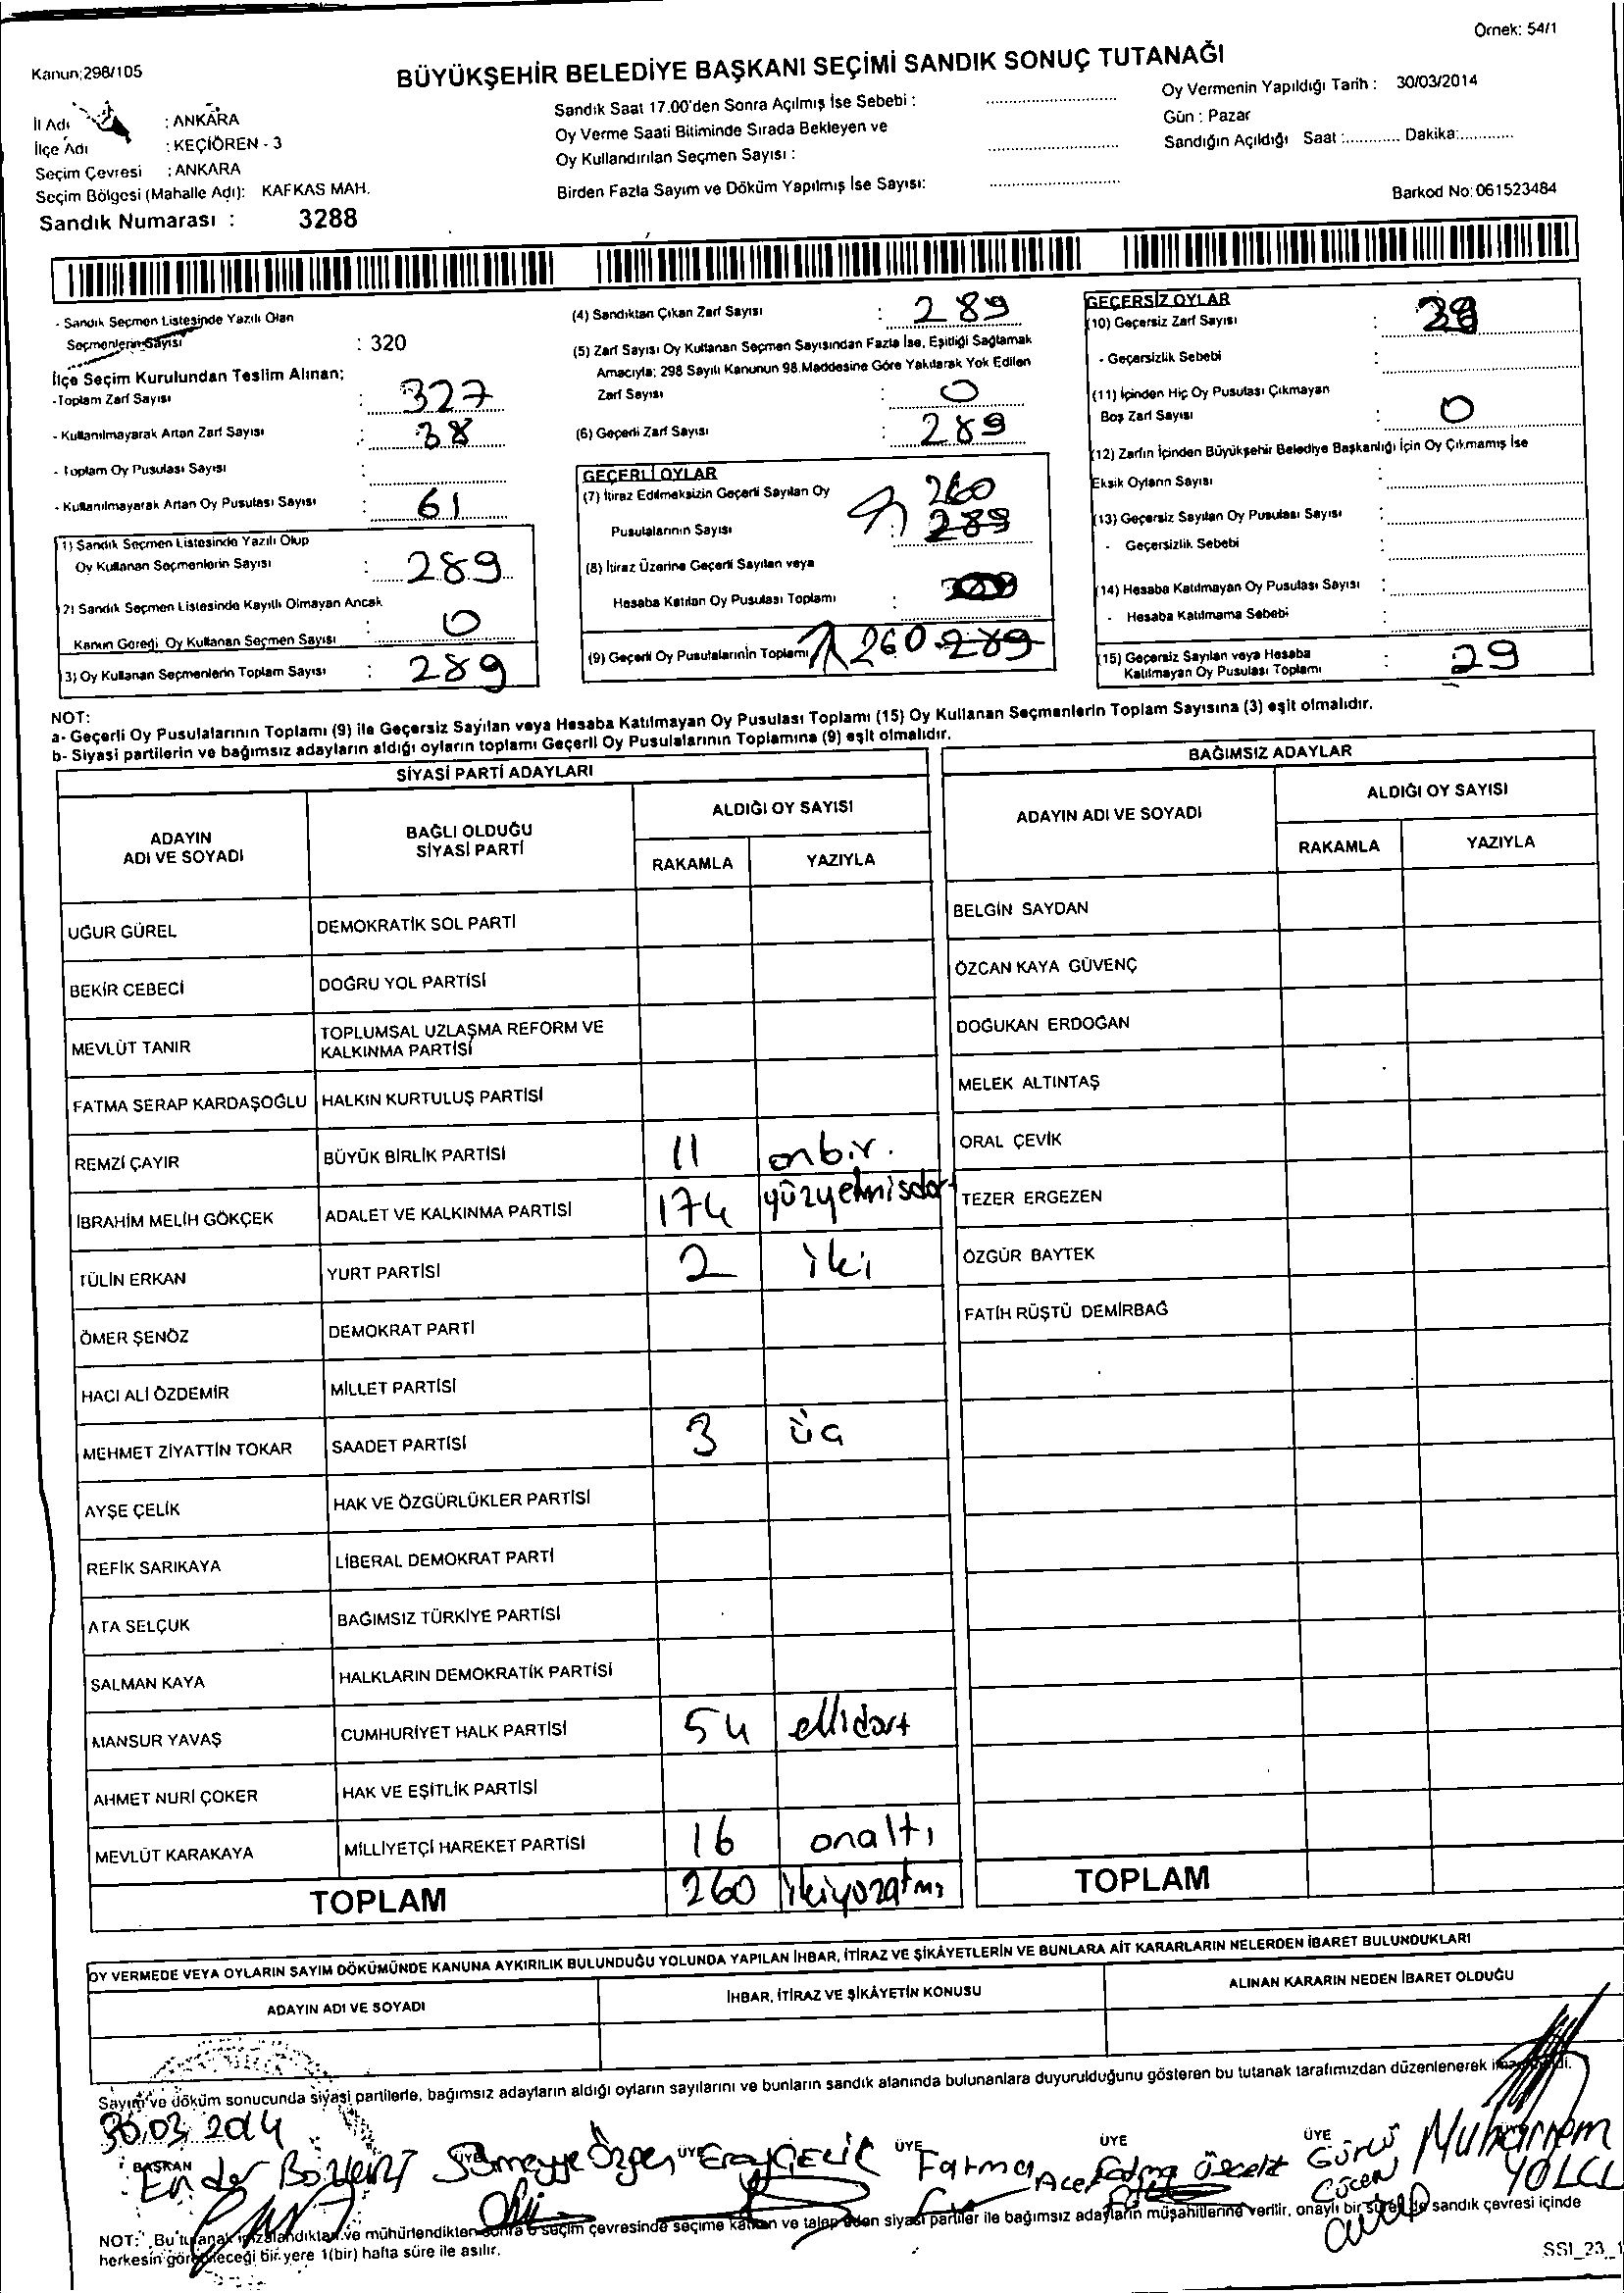 Örnek: 54/1
Kanun:298/105
BÜYÜKŞEHİR BELEDİYE BAŞKANI SEÇİMİ SANDIK SONUÇ TUTANAĞI
İl Adı : ANKARA
İlçe Adı : KEÇİÖREN - 3
Seçim Çevresi : ANKARA
Seçim Bölgesi (Mahalle Adı): KAFKAS MAH.
Sandık Numarası : 3288
Sandık Saat 17.00'den Sonra Açılmış İse Sebebi :
Oy Verme Saati Bitiminde Sırada Bekleyen ve
Oy Kullandırılan Seçmen Sayısı :
Birden Fazla Sayım ve Döküm Yapılmış İse Sayısı:
Oy Vermenin Yapıldığı Tarih : 30/03/2014
Gün : Pazar
Sandığın Açıldığı Saat :............ Dakika:............
Barkod No: 061523484
- Sandık Seçmen Listesinde Yazılı Olan
Seçmenlerin Sayısı : 320
İlçe Seçim Kurulundan Teslim Alınan;
-Toplam Zarf Sayısı : 327
- Kullanılmayarak Artan Zarf Sayısı : 38
- Toplam Oy Pusulası Sayısı :
- Kullanılmayarak Artan Oy Pusulası Sayısı : 61
1) Sandık Seçmen Listesinde Yazılı Olup
Oy Kullanan Seçmenlerin Sayısı : 289
2) Sandık Seçmen Listesinde Kayıtlı Olmayan Ancak
Kanun Gereği Oy Kullanan Seçmen Sayısı : 0
3) Oy Kullanan Seçmenlerin Toplam Sayısı : 289
(4) Sandıktan Çıkan Zarf Sayısı : 289
(5) Zarf Sayısı Oy Kullanan Seçmen Sayısından Fazla İse, Eşitliği Sağlamak
Amacıyla; 298 Sayılı Kanunun 98.Maddesine Göre Yakılarak Yok Edilen
Zarf Sayısı : 0
(6) Geçerli Zarf Sayısı : 289
GEÇERLİ OYLAR
(7) İtiraz Edilmeksizin Geçerli Sayılan Oy 260
Pusulalarının Sayısı : 289
(8) İtiraz Üzerine Geçerli Sayılan veya
Hesaba Katılan Oy Pusulası Toplamı :
(9) Geçerli Oy Pusulalarının Toplamı 260 289
GEÇERSİZ OYLAR
(10) Geçersiz Zarf Sayısı :
- Geçersizlik Sebebi :
(11) İçinden Hiç Oy Pusulası Çıkmayan
Boş Zarf Sayısı : 0
(12) Zarfın İçinden Büyükşehir Belediye Başkanlığı İçin Oy Çıkmamış İse
Eksik Oyların Sayısı :
(13) Geçersiz Sayılan Oy Pusulası Sayısı :
- Geçersizlik Sebebi :
(14) Hesaba Katılmayan Oy Pusulası Sayısı :
- Hesaba Katılmama Sebebi :
(15) Geçersiz Sayılan veya Hesaba
Katılmayan Oy Pusulası Toplamı : 29
NOT:
a- Geçerli Oy Pusulalarının Toplamı (9) ile Geçersiz Sayılan veya Hesaba Katılmayan Oy Pusulası Toplamı (15) Oy Kullanan Seçmenlerin Toplam Sayısına (3) eşit olmalıdır.
b- Siyasi partilerin ve bağımsız adayların aldığı oyların toplamı Geçerli Oy Pusulalarının Toplamına (9) eşit olmalıdır.
SİYASİ PARTİ ADAYLARI
ADAYIN ADI VE SOYADI BAĞLI OLDUĞU SİYASİ PARTİ ALDIĞI OY SAYISI
RAKAMLA YAZIYLA
UĞUR GÜREL DEMOKRATİK SOL PARTİ
BEKİR CEBECİ DOĞRU YOL PARTİSİ
MEVLÜT TANIR TOPLUMSAL UZLAŞMA REFORM VE KALKINMA PARTİSİ
FATMA SERAP KARDAŞOĞLU HALKIN KURTULUŞ PARTİSİ
REMZİ ÇAYIR BÜYÜK BİRLİK PARTİSİ 11 onbir.
İBRAHİM MELİH GÖKÇEK ADALET VE KALKINMA PARTİSİ 174 yüzyetmisdört
TÜLİN ERKAN YURT PARTİSİ 2 iki
ÖMER ŞENÖZ DEMOKRAT PARTİ
HACI ALİ ÖZDEMİR MİLLET PARTİSİ
MEHMET ZİYATTİN TOKAR SAADET PARTİSİ 3 üç
AYŞE ÇELİK HAK VE ÖZGÜRLÜKLER PARTİSİ
REFİK SARIKAYA LİBERAL DEMOKRAT PARTİ
ATA SELÇUK BAĞIMSIZ TÜRKİYE PARTİSİ
SALMAN KAYA HALKLARIN DEMOKRATİK PARTİSİ
MANSUR YAVAŞ CUMHURİYET HALK PARTİSİ 54 ellidört
AHMET NURİ ÇOKER HAK VE EŞİTLİK PARTİSİ
MEVLÜT KARAKAYA MİLLİYETÇİ HAREKET PARTİSİ 16 onaltı
TOPLAM 260 ikiyüzatmı
BAĞIMSIZ ADAYLAR
ADAYIN ADI VE SOYADI ALDIĞI OY SAYISI
RAKAMLA YAZIYLA
BELGİN SAYDAN
ÖZCAN KAYA GÜVENÇ
DOĞUKAN ERDOĞAN
MELEK ALTINTAŞ
ORAL ÇEVİK
TEZER ERGEZEN
ÖZGÜR BAYTEK
FATİH RÜŞTÜ DEMİRBAĞ
TOPLAM
OY VERMEDE VEYA OYLARIN SAYIM DÖKÜMÜNDE KANUNA AYKIRILIK BULUNDUĞU YOLUNDA YAPILAN İHBAR, İTİRAZ VE ŞİKÂYETLERİN VE BUNLARA AİT KARARLARIN NELERDEN İBARET BULUNDUKLARI
ADAYIN ADI VE SOYADI İHBAR, İTİRAZ VE ŞİKÂYETİN KONUSU ALINAN KARARIN NEDEN İBARET OLDUĞU
Sayım ve döküm sonucunda siyasi partilerle, bağımsız adayların aldığı oyların sayılarını ve bunların sandık alanında bulunanlara duyurulduğunu gösteren bu tutanak tarafımızdan düzenlenerek
30.03.2014
BAŞKAN ÜYE ÜYE ÜYE ÜYE
Ender Sümeyye Fatma Acer Fatma Muharrem YOLCU
NOT: Bu tutanak imzalandıktan ve mühürlendikten sonra o seçim çevresinde seçime katılan ve talep eden siyasi partiler ile bağımsız adayların müşahitlerine verilir, onaylı bir sureti de sandık çevresi içinde
herkesin görebileceği bir yere 1(bir) hafta süre ile asılır.
SSI_23_1